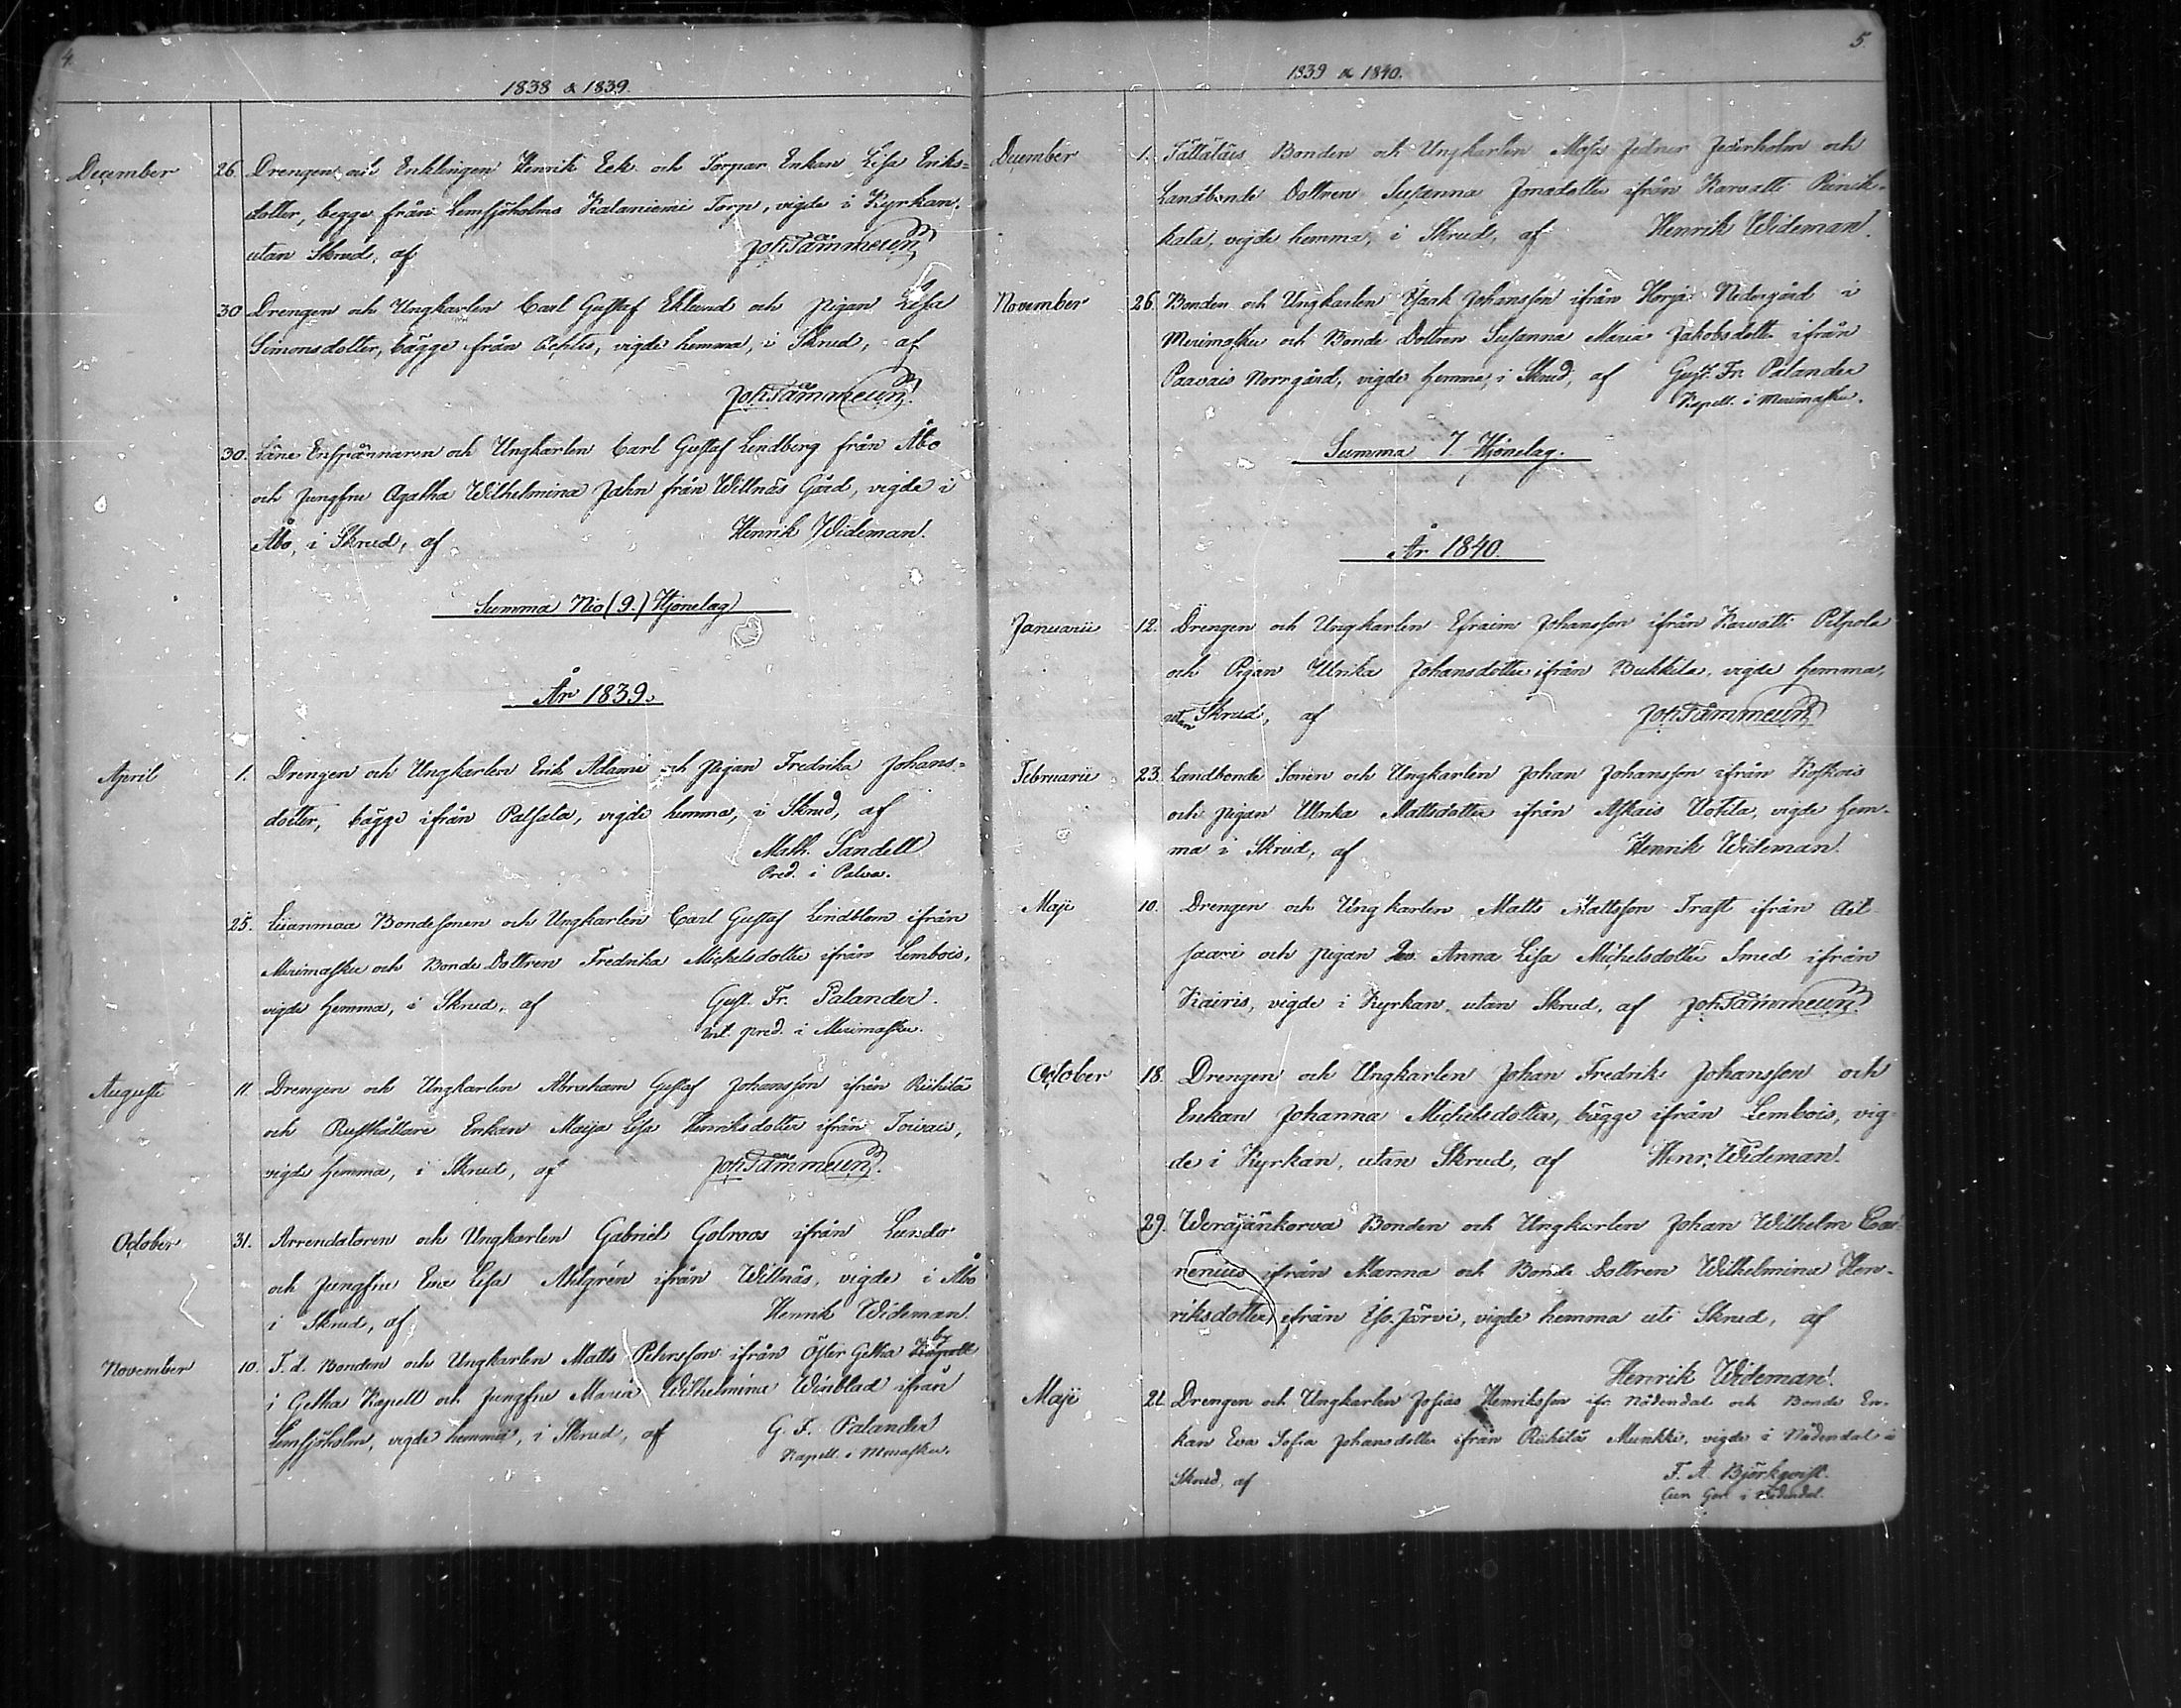 4.
1838 & 1839.
December 26. Drengen och Enklingen Henrik Eek och Torpar Enkan Lisa Eriks-
dotter, begge från Lemsjöholms Kalaniemi Torp, vigde i Kyrkan,
utan Skrud, af Joh Tammelin
30 Drengen och Ungkarlen Carl Gustaf Eklund och pigan Lisa
Simonsdotter, bägge från Ahtis, vigde hemma, i Skrud, af
Joh Tammelin
30. Läne Enspännaren och Ungkarlen Carl Gustaf Lindberg från Åbo
och Jungfru Agatha Wilhelmina Jahn från Willnäs Gård, vigde i
Åbo, i Skrud, af Henrik Wideman.
Summa Nio (9.) Hjonelag
År 1839.
April 1. Drengen och Ungkarlen Erik Adami och pigan Fredrika Johans-
dotter, bägge ifrån Palsala, vigde hemma, i Skrud, af
Math. Sandell
Pred. i Palva.
25. Liianmaa Bondesonen och Ungkarlen Carl Gustaf Lindblom ifrån
Merimasku och Bonde Dottren Fredrika Michelsdotter ifrån Lembois,
vigde hemma, i Skrud, af Gust. Fr. Palander.
pred. i Merimasku.
Augusti 11. Drengen och Ungkarlen Abraham Gustaf Johansson ifrån Riikilä
och Rusthållare Enkan Maija Lisa Henriksdotter ifrån Toivais,
vigde hemma, i Skrud, af Joh Tammelin
October 31. Arrendatoren och Ungkarlen Gabriel Golnoos ifrån Lundo
och Jungfru Eva Lisa Ahlgrén ifrån Willnäs, vigde i Åbo
i Skrud, af Henrik Wideman.
November 10. F. d. Bonden och Ungkarlen Matts Pehrsson ifrån Öster Getha by
i Getha Kapell och Jungfru Maria Wilhelmina Winblad ifrån
Lemsjöholm, vigde hemma, i Skrud, af G. F. Palander
Kapell. i Merimasku.
5.
1839 & 1840.
December 1. Tättäläis Bonden och Ungkarlen Moses Jederholm och
Landbonde Dottren Susanna Jonadotter ifrån Karvatti Pinik-
kala, vigde hemma, i Skrud, af Henrik Wideman.
November 26. Bonden och Ungkarlen Isaak Johansson ifrån Horja Nedergård i
Merimasku och Bonde Dottren Susanna Maria Jakobsdotter ifrån
Paavais Norrgård, vigde hemma, i Skrud, af Gust. Fr. Palander
Kapell. i Merimasku.
Summa 7 Hjonelag.
År 1840.
Januarii 12. Drengen och Ungkarlen Efraim Johansson ifrån Karvatti Pilpola
och Pigan Ulrika Johansdotter ifrån Bukkila, vigde hemma,
utan Skrud, af Joh Tammelin
Februarii 23. Landbonde Sonen och Ungkarlen Johan Johansson ifrån Koskois
och pigan Ulrika Mattsdotter ifrån Askais Uotila, vigde hem-
ma i Skrud, af Henrik Wideman.
Maji 10. Drengen och Ungkarlen Matts Mattsson Trast ifrån Ait-
saari och pigan Anna Lisa Michelsdotter Smed ifrån
Kairis, vigde i Kyrkan, utan Skrud, af Joh Tammelin
October 18. Drengen och Ungkarlen Johan Fredrik Johansson och
Enkan Johanna Michelsdotter, bägge ifrån Lembois, vig-
de i Kyrkan, utan Skrud, af Henr. Wideman.
29. Weräjänkorva Bonden och Ungkarlen Johan Wilhelm Loo-
renius ifrån Manna och Bonde Dottren Wilhelmina Hen-
riksdotter ifrån Iso-Järvi, vigde hemma uti Skrud, af
Henrik Wideman.
Maji 21. Drengen och Ungkarlen Josias Henriksson ifr. Nådendal och Bonde En-
kan Eva Sofia Johansdotter ifrån Riikilä Munkki, vigde i Nådendal i
Skrud, af F. A. Björkqvist.
i Nådendal.